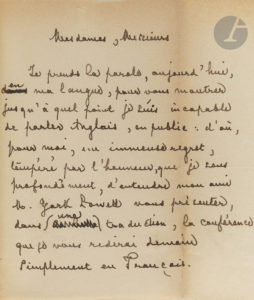 Mesdames, Messieurs
Je prends la parole, aujourd'hui,
en ma langue, pour vous montrer
jusqu'à quel point je suis incapable
de parler Anglais, en public : d'où,
pour moi, un immense regret,
tempéré par l'honneur, que je sens
profondément, d'entendre mon ami
M. York Powell vous présenter,
dans une traduction, la conférence
que je vous redirai demain
simplement en Français.